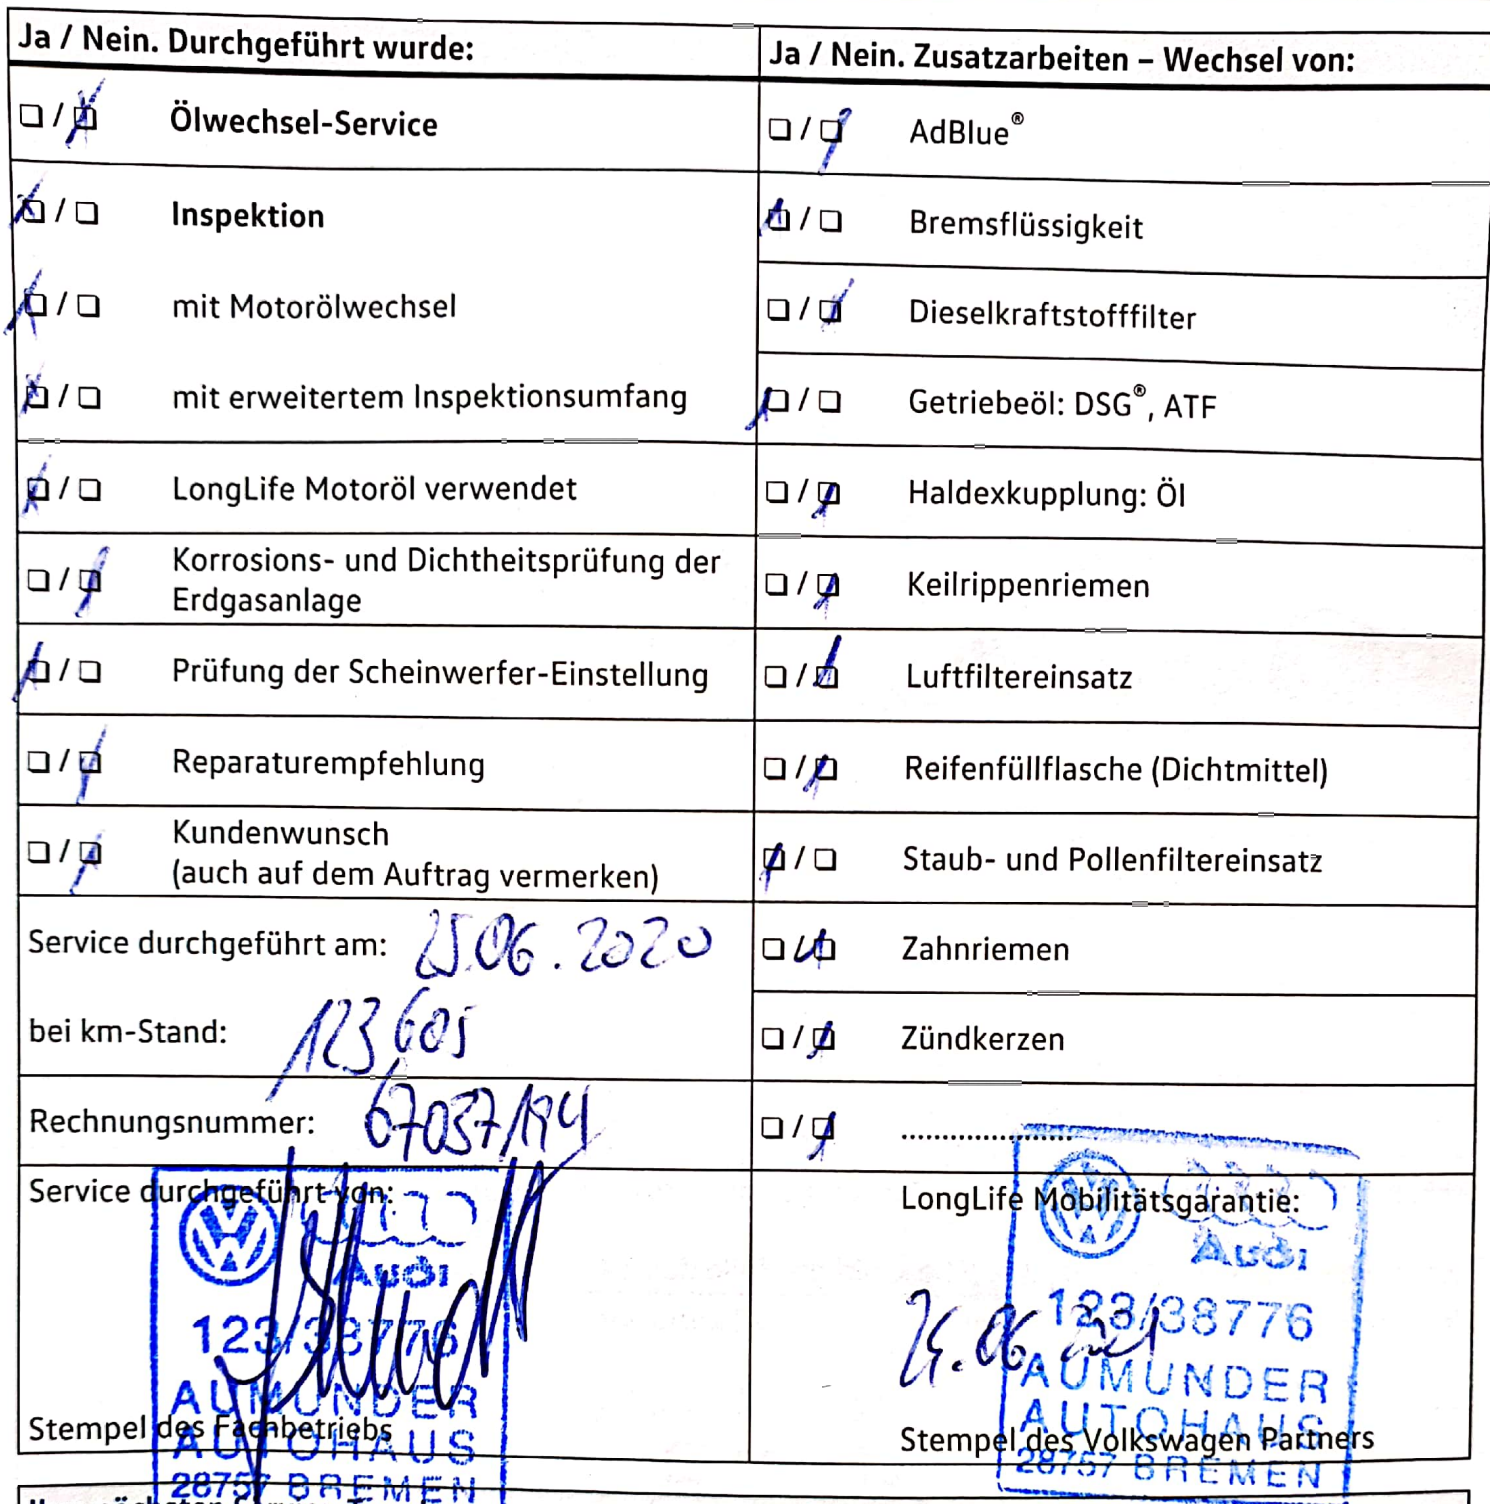 Ja / Nein. Durchgeführt wurde:
☐ / ☒ Ölwechsel-Service
☒ / ☐ Inspektion
☒ / ☐ mit Motorölwechsel
☒ / ☐ mit erweitertem Inspektionsumfang
☒ / ☐ LongLife Motoröl verwendet
☐ / ☒ Korrosions- und Dichtheitsprüfung der
Erdgasanlage
☒ / ☐ Prüfung der Scheinwerfer-Einstellung
☐ / ☒ Reparaturempfehlung
☐ / ☒ Kundenwunsch
(auch auf dem Auftrag vermerken)
Service durchgeführt am: 25.06.2020
bei km-Stand: 123605
Rechnungsnummer: 67037/194
Service durchgeführt von:
Audi
123/38776
AUMUNDER
AUTOHAUS
28757 BREMEN
Stempel des Fachbetriebs
Ja / Nein. Zusatzarbeiten – Wechsel von:
☐ / ☒ AdBlue®
☒ / ☐ Bremsflüssigkeit
☐ / ☒ Dieselkraftstofffilter
☒ / ☐ Getriebeöl: DSG®, ATF
☐ / ☒ Haldexkupplung: Öl
☐ / ☒ Keilrippenriemen
☐ / ☒ Luftfiltereinsatz
☐ / ☒ Reifenfüllflasche (Dichtmittel)
☒ / ☐ Staub- und Pollenfiltereinsatz
☐ / ☒ Zahnriemen
☐ / ☒ Zündkerzen
☐ / ☒ .....................
LongLife Mobilitätsgarantie:
Audi
123/38776
AUMUNDER
AUTOHAUS
28757 BREMEN
Stempel des Volkswagen Partners